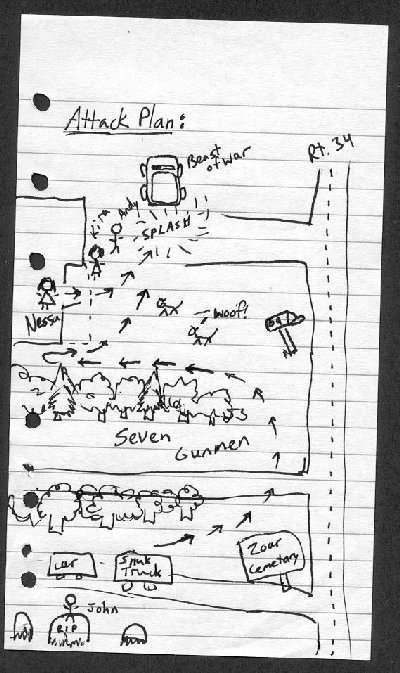 Attack Plan:
Beast
of war
Rt. 34
Andy
SPLASH
Nessa
woof!
Seven
Gunmen
car
Truck
Zoar
Cemetary
John
R.I.P